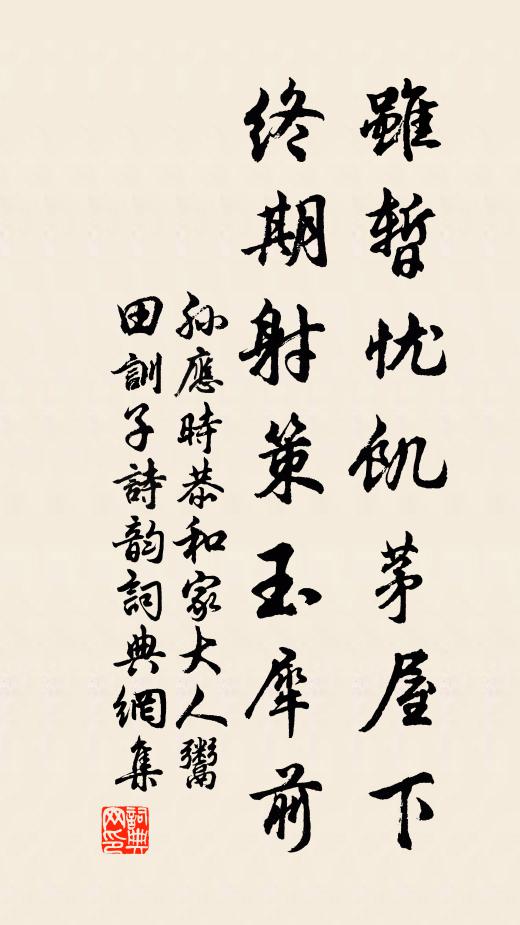 雖暫忧飢茅屋下
終期射策玉犀前
孫應時恭和家大人鬻
田訓子詩韵詞典網集
詞典网印